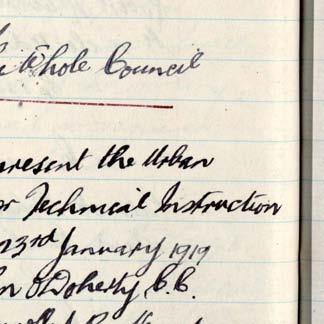 Whole Council
present the Urban
Technical Instruction
23rd January 1919
O'Doherty C.C.